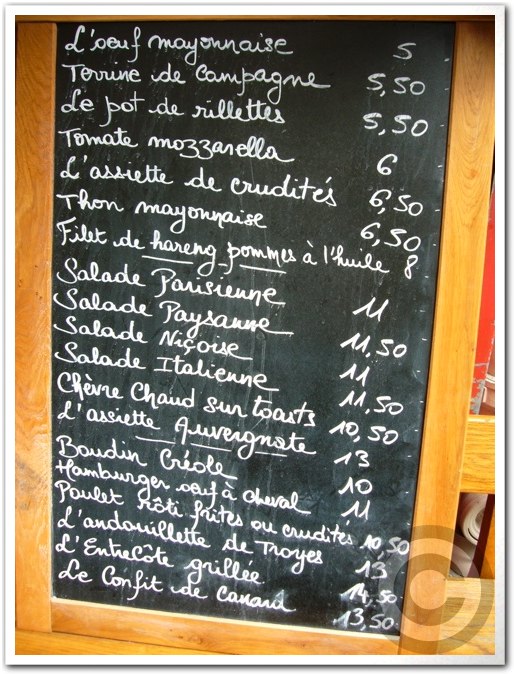 L'oeuf mayonnaise 5
Terrine de Campagne 5,50
Le pot de rillettes 5,50
Tomate mozzarella 6
L'assiette de crudités 6,50
Thon mayonnaise 6,50
Filet de hareng pommes à l'huile 8
Salade Parisienne 11
Salade Paysanne 11,50
Salade Niçoise 11
Salade Italienne 11,50
Chèvre Chaud sur toasts 10,50
L'assiette Auvergnate 13
Boudin Créole 10
Hamburger oeuf à cheval 11
Poulet rôti frites ou crudités 10,50
L'andouillette de Troyes 13
L'EntreCôte grillée 14,50
Le Confit de canard 13,50
C